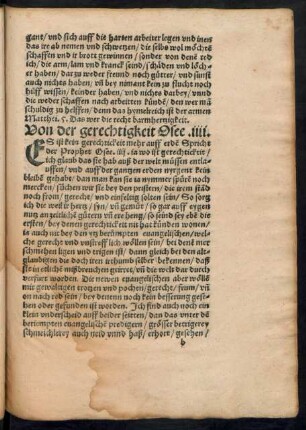 gant/ vnd sich auff die harten arbeiter legen vnd inen
das ir ab nemen vnd schwetzen/ die selbs wol möchtē
schaffen vnd ir brott gewinnen/ sonder von denē red
ich/ die arm/ lam vnd kranck seind/ schäden vnd löch
er haben/ dar zu weder freund noch gütter/ vnd sunst
auch nichts haben/ vñ bey nimant kein zu flucht noch
hülff wissen/ keinder haben/ vnd nichts darbey/ vnnd
die weder schaffen noch arbeitten künde/ den wer mā
schuldig zu helffen/ denn das hymelreich ist der armen
Matthei. 5. Das wer die recht barmhertzigkeit.
Von der gerechtigkeit Osee .iiii.
ES ist kein gerechtickeit mehr auff erdē Spricht
der Prophet Osee. iiii. ia wo ist gerechtickeit/
ich glaub das sie hab auß der welt müssen entlau
uffen/ vnd auff der gantzen erden nyrgent kein
bleibē gehabt/ dan man kan sie ia nymmer spürē noch
mercken/ sůchen wir sie bey den pristern/ die irem stād
noch from/ gerecht/ vnd on alle sünd solten sein/ So
ich das ir weil ir hertz/ syn/ vñ gemüt/ so gar auff eygen
nutz an zeitlichē güttern vñ ere heng/ so seind sey ebē die
ersten/ bey denen gerechtickeit nit hat künden wonen/
es auch nit bey den
gerecht vnd vnstreff lich wöllen sein/ bei denē mer
schmehen ligen vnd trigen ist/ dann gleich bei den al
glaubigen die doch iren irthumb selber bekennen/ daß
sie in etliche mißbreichen geirret/ vñ die welt dar durch
verfüret worden. Die neuwen euangelischen aber wöllē
mit gewaltigen trotzen vnd pochen/
on nach rod sein/ bey denenn noch kein besserung gesse
hen oder gefunden ist worden. Ich find auch noch ein
klein vnderscheid auff beider seitten/ dan das vnter dē
berümpten euangelischē predigern/ grösser betrigerey
schmeichlerey auch neid vnnd haß/ erhört/ gesehen/
b